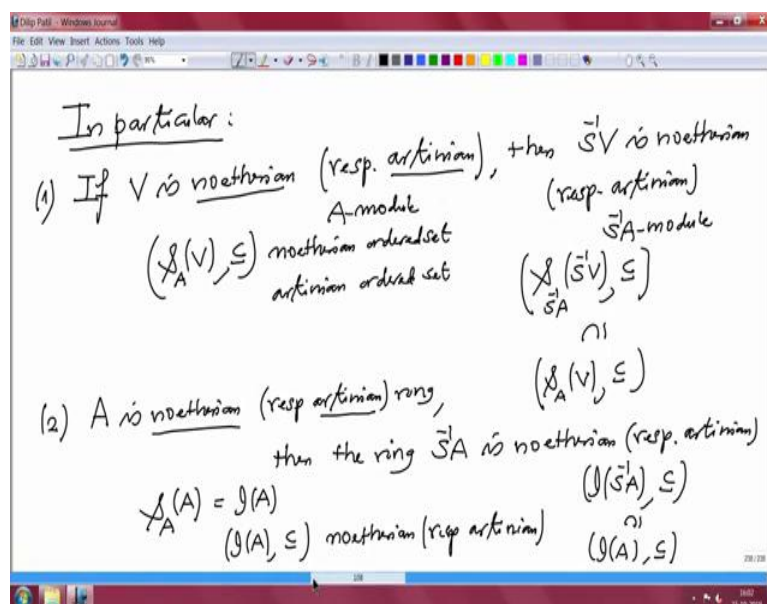 Dilip Patil - Windows Journal
File Edit View Insert Actions Tools Help
In particular:
(1) If V is noetherian (resp. artinian), then S⁻¹V is noetherian
A-module (resp. artinian)
S⁻¹A-module
(𝒮_A(V), ⊆) noetherian ordered set
artinian ordered set
(𝒮_{S⁻¹A}(S⁻¹V), ⊆)
∩|
(𝒮_A(V), ⊆)
(2) A is noetherian (resp artinian) ring,
then the ring S⁻¹A is noetherian (resp. artinian)
𝒮_A(A) = 𝓘(A)
(𝓘(A), ⊆) noetherian (resp artinian)
(𝓘(S⁻¹A), ⊆)
∩|
(𝓘(A), ⊆)
238/238
108
16:02